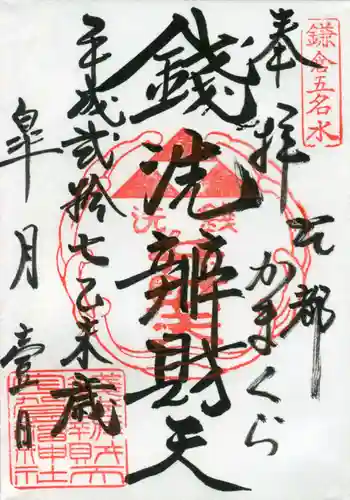 鎌倉五名水
奉拝
古都
かまくら
銭洗辨財天
平成弐拾七乙未歳
皐月壹日
銭洗